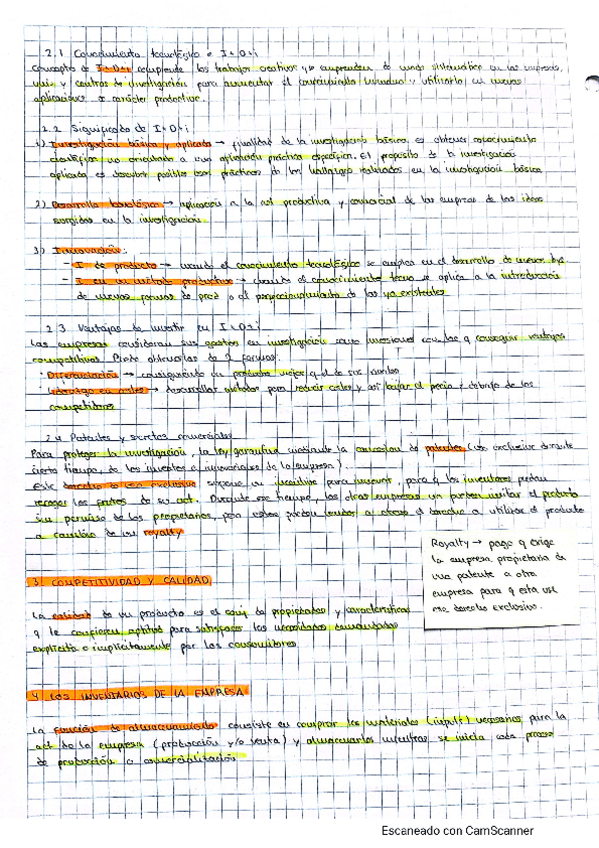 2.1 Conocimiento tecnológico e I+D+i
Concepto de I+D+i comprende los trabajos creativos q se emprenden de modo sistemático en las empresas,
univ y centros de investigación para aumentar el conocimiento humano y utilizarlo en nuevas
aplicaciones de carácter productivo.
2.2 Significado de I+D+i
1) Investigación básica y aplicada → finalidad de la investigación básica es obtener conocimiento
científico no orientado a una aplicación práctica específica. El propósito de la investigación
aplicada es descubrir posibles usos prácticos de los hallazgos realizados en la investigación básica
2) Desarrollo tecnológico → aplicación a la act productiva y comercial de las empresas de las ideas
surgidas en la investigación
3) Innovación:
- I de producto → cuando el conocimiento tecnológico se emplea en el desarrollo de nuevos bys
- I en un método productivo → cuando el conocimiento tecno se aplica a la introducción
de nuevas formas de prod o al perfeccionamiento de las ya existentes
2.3 Ventajas de invertir en I+D+i
Las empresas consideran sus gastos en investigación como inversiones con las q conseguir ventajas
competitivas. Puede obtenerlas de 2 formas:
· Diferenciación → consiguiendo un producto mejor q el de sus rivales
· Liderazgo en costes → desarrollar métodos para reducir costes y así bajar el precio x debajo de los
competidores
2.4 Patentes y secretos comerciales
Para proteger la investigación, la ley garantiza mediante la concesión de patentes (uso exclusivo durante
cierto tiempo, de los inventos e innovaciones de la empresa).
Este derecho de uso exclusivo supone un incentivo para innovar, para q los inventores puedan
recoger los frutos de su act. Durante ese tiempo, las otras empresas no pueden imitar el producto
sin permiso de los propietarios, pero estos pueden vender a otros el derecho a utilizar el producto
a cambio de un royalty
Royalty → pago q exige
la empresa propietaria de
una patente a otra
empresa para q esta use
ese derecho exclusivo.
3. COMPETITIVIDAD Y CALIDAD
La calidad de un producto es el conj de propiedades y características
q le confieren aptitud para satisfacer las necesidades demandadas
explícita o implícitamente por los consumidores
4 LOS INVENTARIOS DE LA EMPRESA
La función de almacenamiento consiste en comprar los materiales (inputs) necesarios para la
act de la empresa (producción y/o venta) y almacenarlos mientras se inicia cada proceso
de producción o comercialización
Escaneado con CamScanner